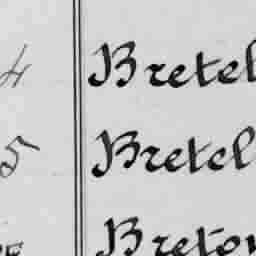 4 Bretel
5 Bretel
Breton